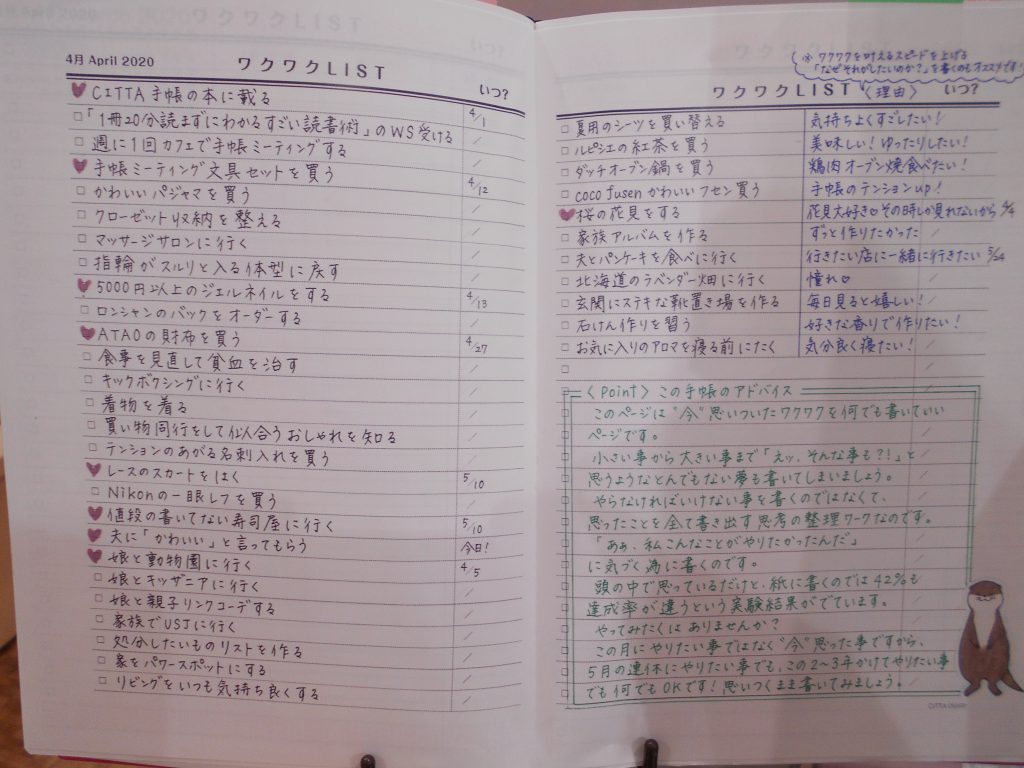 4月 April 2020
ワクワクLIST
いつ?
CITTA手帳の本に載る 4/1
「1冊20分読まずにわかるすごい読書術」のWS受ける
週に1回カフェで手帳ミーティングする
手帳ミーティング文具セットを買う 4/12
かわいいパジャマを買う
クローゼット収納を整える
マッサージサロンに行く
指輪がスルリと入る体型に戻す
5000円以上のジェルネイルをする 4/13
ロンシャンのバックをオーダーする
ATAOの財布を買う 4/27
食事を見直して貧血を治す
キックボクシングに行く
着物を着る
買い物同行をして似合うおしゃれを知る
テンションのあがる名刺入れを買う
レースのスカートをはく 5/10
Nikonの一眼レフを買う
値段の書いてない寿司屋に行く 5/10
夫に「かわいい」と言ってもらう 今日!
娘と動物園に行く 4/5
娘とキッザニアに行く
娘と親子リンクコーデする
家族でUSJに行く
処分したいものリストを作る
家をパワースポットにする
リビングをいつも気持ち良くする
※ ワクワクを叶えるスピードを上げる
「なぜそれがしたいのか?」を書くのもオススメです!
ワクワクLIST 〈理由〉 いつ?
夏用のシーツを買い替える 気持ちよくすごしたい!
ルピシエの紅茶を買う 美味しい!ゆったりしたい!
ダッチオーブン鍋を買う 鶏肉オーブン焼食べたい!
coco fusen かわいいフセン買う 手帳のテンションup!
桜の花見をする 花見大好き♡その時しか見れないから 4/4
家族アルバムを作る ずっと作りたかった
夫とパンケーキを食べに行く 行きたい店に一緒に行きたい 5/24
北海道のラベンダー畑に行く 憧れ♡
玄関にステキな靴置き場を作る 毎日見ると嬉しい!
石けん作りを習う 好きな香りで作りたい!
お気に入りのアロマを寝る前にたく 気分良く寝たい!
〈Point〉この手帳のアドバイス
このページは"今"思いついたワクワクを何でも書いていい
ページです。
小さい事から大きい事まで「えッ、そんな事も?!」と
思うようなとんでもない夢も書いてしまいましょう。
やらなければいけない事を書くのではなくて、
思ったことを全て書き出す思考の整理ワークなのです。
「あぁ、私こんなことがやりたかったんだ」
に気づく為に書くのです。
頭の中で思っているだけと、紙に書くのでは42%も
達成率が違うという実験結果がでています。
やってみたくはありませんか?
この月にやりたい事ではなく"今"思った事ですから、
5月の連休にやりたい事でも、この2〜3年かけてやりたい事
でも何でもOKです!思いつくまま書いてみましょう。